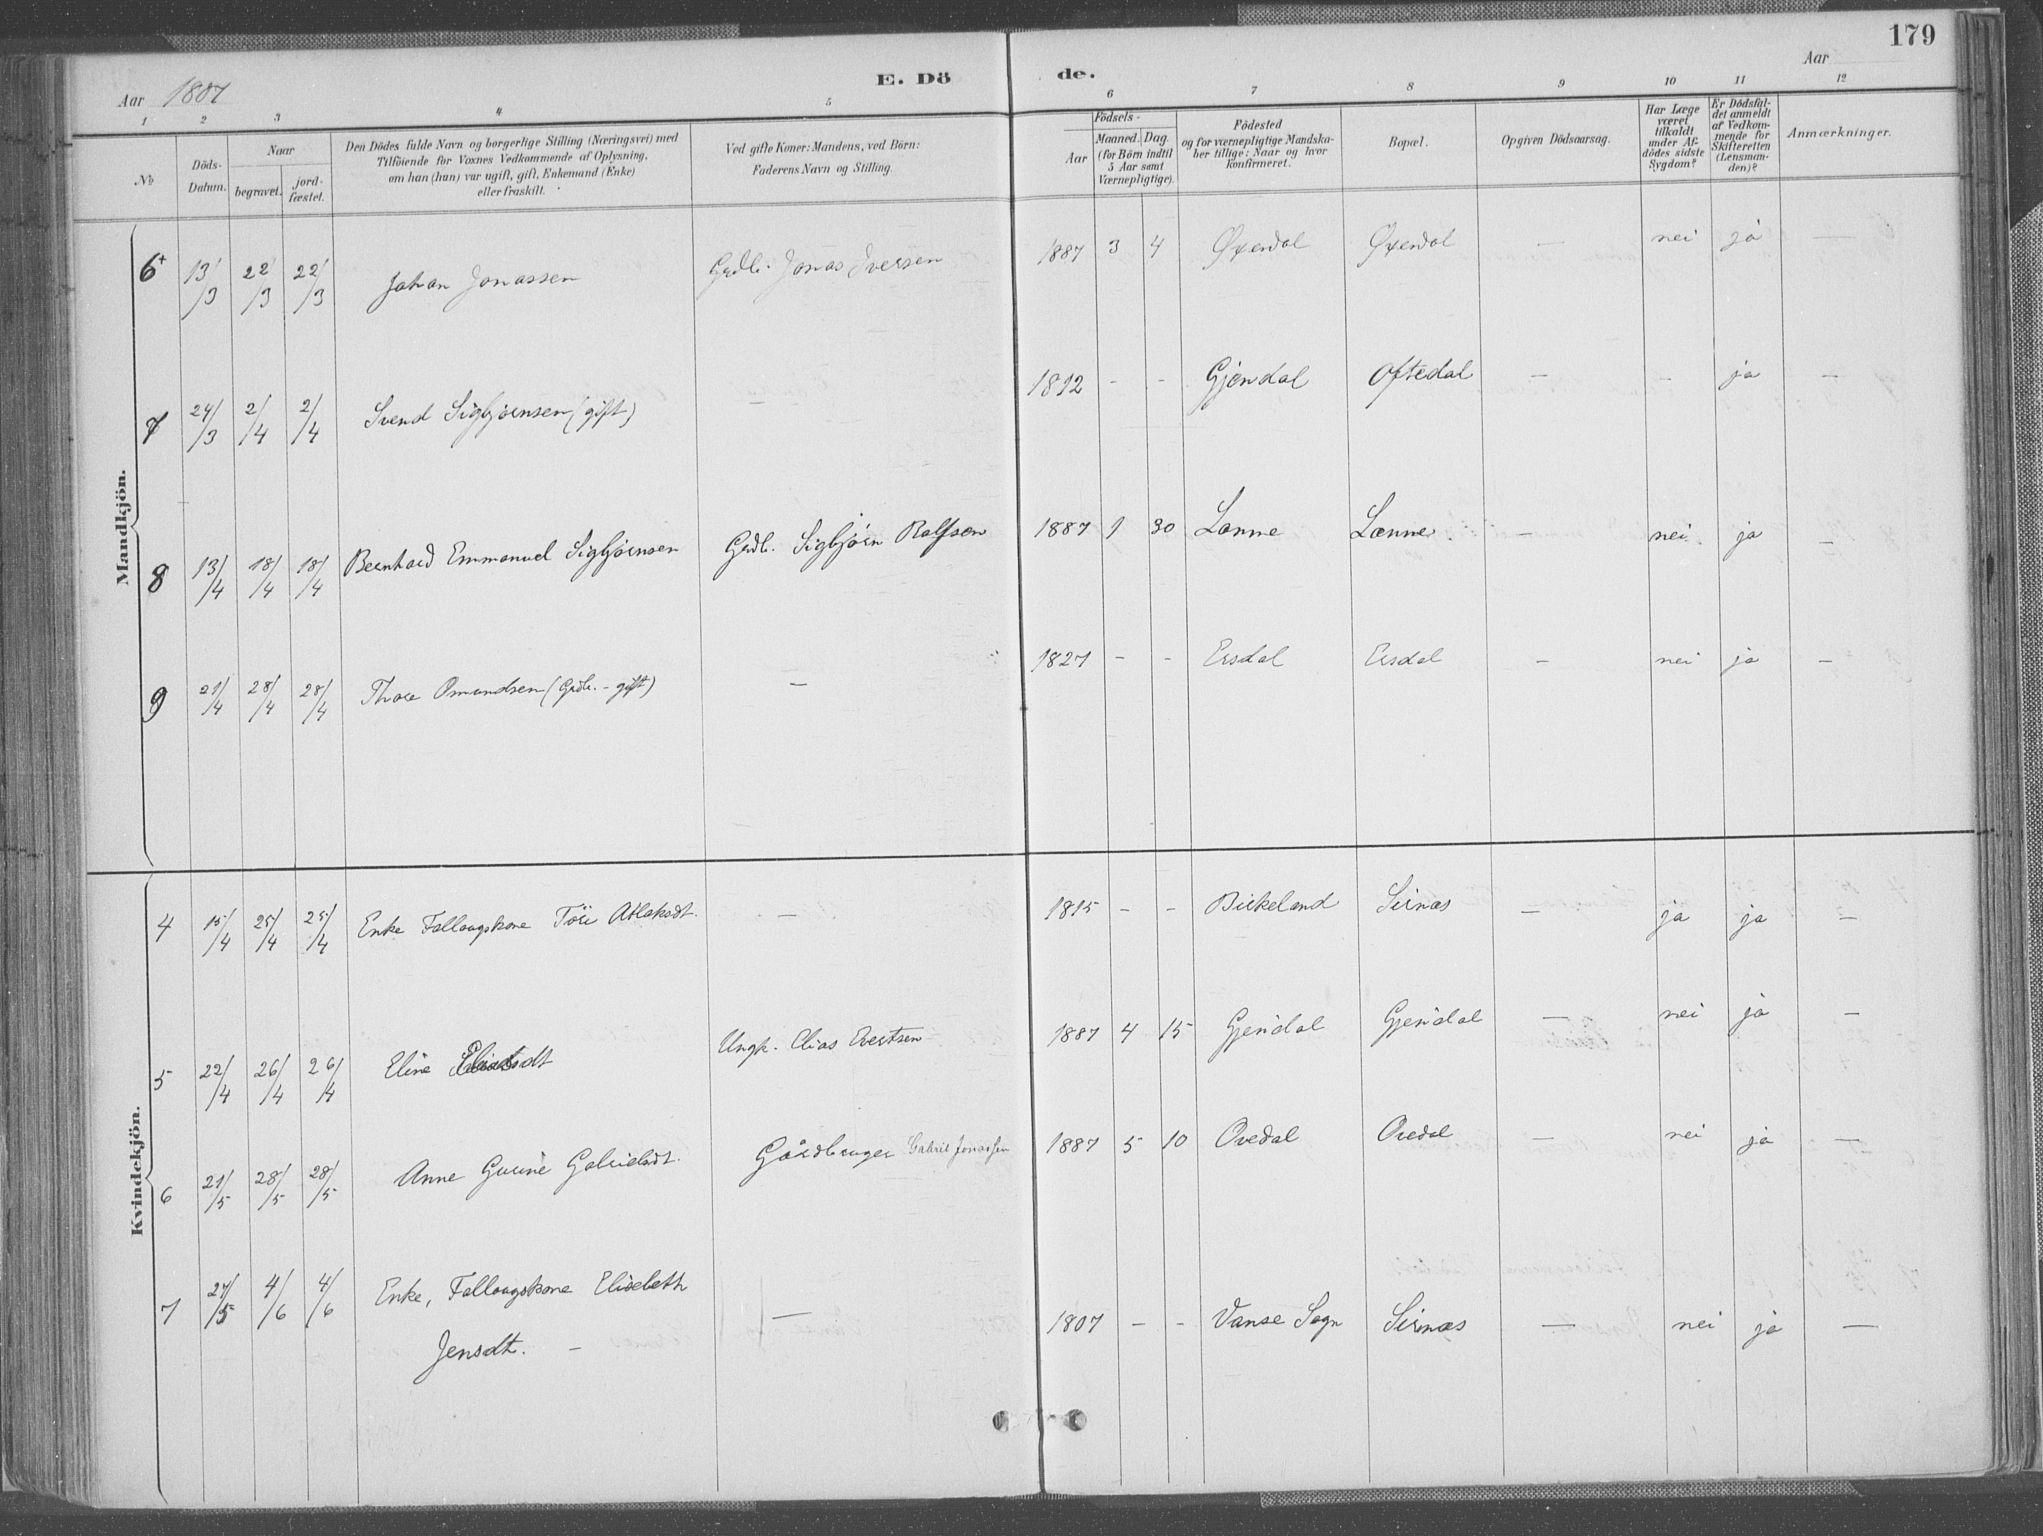 179
Aar 1887
E. Dö de.
Aar
1 2 3 4 5 6 7 8 9 10 11 12
No
Döds-
Datum.
Naar
begravet.
jord-
fæstet.
Den Dödes fulde Navn og borgerlige Stilling (Næringsvei) med
Tilföiende for Voxnes Vedkommende af Oplysning,
om han (hun) var ugift, gift, Enkemand (Enke)
eller fraskilt.
Ved gifte Koner: Mandens, ved Börn:
Faderens Navn og Stilling.
Födsels-
Aar
Maaned. Dag.
(for Börn indtil
5 Aar samt
Værnepligtige).
Födested
og for værnepligtige Mandska-
ber tillige: Naar og hvor
konfirmeret.
Bopæl.
Opgiven Dödsaarsag.
Har Læge
været
tilkaldt
under Af-
dödes sidste
Sygdom?
Er Dödsfal-
det anmeldt
af Vedkom-
mende for
Skifteretten
(Lensman-
den)?
Anmærkninger.
Mandkjön.
6+ 13/3 22/3 22/3 Johan Jonassen Grdb. Jonas Iversen 1887 3 4 Øxendal Øxendal — nei ja —
7 24/3 2/4 2/4 Svend Sigbjørnsen (gift) — 1812 - - Gjendal Oftedal — - ja —
8 13/4 18/4 18/4 Bernhard Emmanuel Sigbjørnsen Grdb. Sigbjørn Rolfsen 1887 1 30 Lanne Lanne. — nei. ja —
9 21/4 28/4 28/4 Thore Omundsen (Grdb. - gift) — 1827 - - Ersdal Ersdal — nei ja —
Kvindekjön.
4 15/4 25/4 25/4 Enke Follaugskone Töri Atlaksdt. — 1815 - - Birkeland Sirnæs — ja ja —
5 22/4 26/4 26/4 Eline Eliasdt Ungk. Elias Evertsen 1887 4 15 Gjendal Gjendal — nei ja —
6 21/5 28/5 28/5 Anne Gurine Gabrielsdt. Gårdbruger Gabriel Jonassen 1887 5 10 Ovedal Ovedal — nei ja —
7 27/5 4/6 4/6 Enke, Follaugskone Elisebeth
Jensdt. - — 1807 - - Vanse Sogn Sirnæs — nei ja —